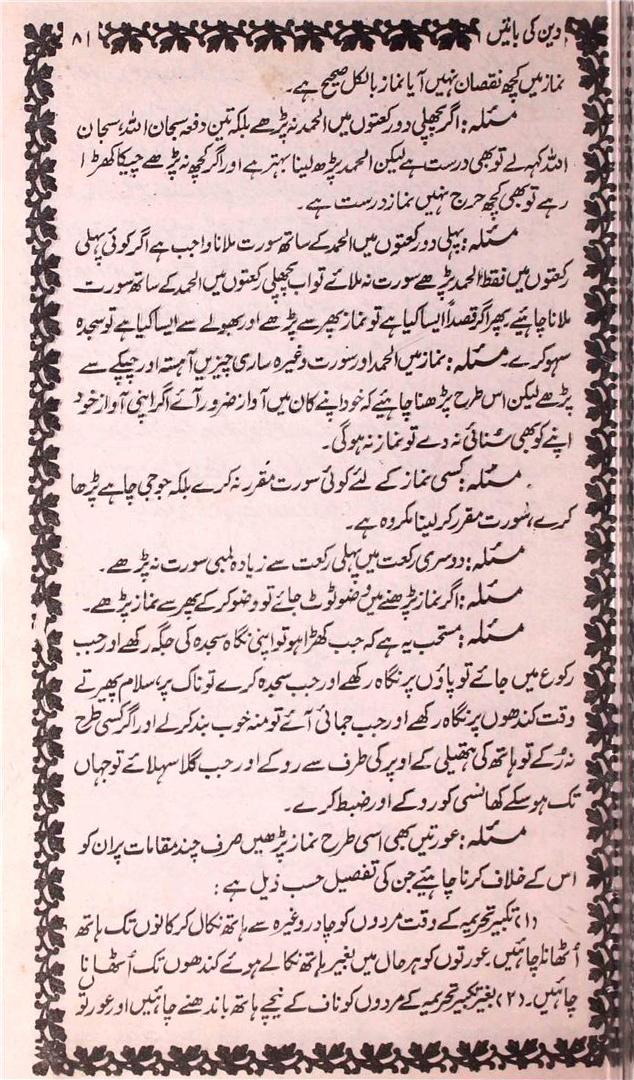 دین کی باتیں ۸۱
نماز میں کچھ نقصان نہیں آیا نماز بالکل صحیح ہے۔
مسئلہ: اگر پچھلی دو رکعتوں میں الحمد نہ پڑھے بلکہ تین دفعہ سبحان اللہ، سبحان
اللہ کہہ لے تو بھی درست ہے لیکن الحمد پڑھ لینا بہتر ہے اور اگر کچھ نہ پڑھے چپکا کھڑا
رہے تو بھی کچھ حرج نہیں نماز درست ہے۔
مسئلہ: پہلی دو رکعتوں میں الحمد کے ساتھ سورت ملانا واجب ہے اگر کوئی پہلی
رکعتوں میں فقط الحمد پڑھے سورت نہ ملائے تو اب پچھلی رکعتوں میں الحمد کے ساتھ سورت
ملانا چاہئے۔ پھر اگر قصداً ایسا کیا ہے تو نماز پھر سے پڑھے اور بھولے سے ایسا کیا ہے تو سجدہ
سہو کرے۔ مسئلہ: نماز میں الحمد اور سورت وغیرہ ساری چیزیں آہستہ اور چپکے سے
پڑھے لیکن اس طرح پڑھنا چاہئیے کہ خود اپنے کان میں آواز ضرور آئے اگر اپنی آواز خود
اپنے کو بھی سُنائی نہ دے تو نماز نہ ہوگی۔
مسئلہ: کسی نماز کے لئے کوئی سورت مقرر نہ کرے بلکہ جو جی چاہے پڑھا
کرے، سورت مقرر کر لینا مکروہ ہے۔
مسئلہ: دوسری رکعت میں پہلی رکعت سے زیادہ لمبی سورت نہ پڑھے۔
مسئلہ: اگر نماز پڑھنے میں وضو ٹوٹ جائے تو وضو کرکے پھر سے نماز پڑھے۔
مسئلہ: مستحب یہ ہے کہ جب کھڑا ہو تو اپنی نگاہ سجدہ کی جگہ رکھے اور جب
رکوع میں جائے تو پاؤں پر نگاہ رکھے اور جب سجدہ کرے تو ناک پر، سلام پھیرتے
وقت کندھوں پر نگاہ رکھے اور جب جمائی آئے تو منہ خوب بند کرلے اور اگر کسی طرح
نہ رُکے تو ہاتھ کی ہتھیلی کے اوپر کی طرف سے روکے اور جب گلا سہلائے تو جہاں
تک ہو سکے کھانسی کو روکے اور ضبط کرے۔
مسئلہ: عورتیں بھی اسی طرح نماز پڑھیں صرف چند مقامات پر ان کو
اس کے خلاف کرنا چاہئیے جن کی تفصیل حسب ذیل ہے:
(۱) تکبیر تحریمہ کے وقت مردوں کو چادر وغیرہ سے ہاتھ نکال کر کانوں تک ہاتھ
اُٹھانا چاہئیں۔ عورتوں کو ہر حال میں بغیر ہاتھ نکالے ہوئے کندھوں تک اُٹھانا
چاہئیں۔ (۲) بغیر تکبیر تحریمہ کے مردوں کو ناف کے نیچے ہاتھ باندھنے چاہئیں اور عورتو